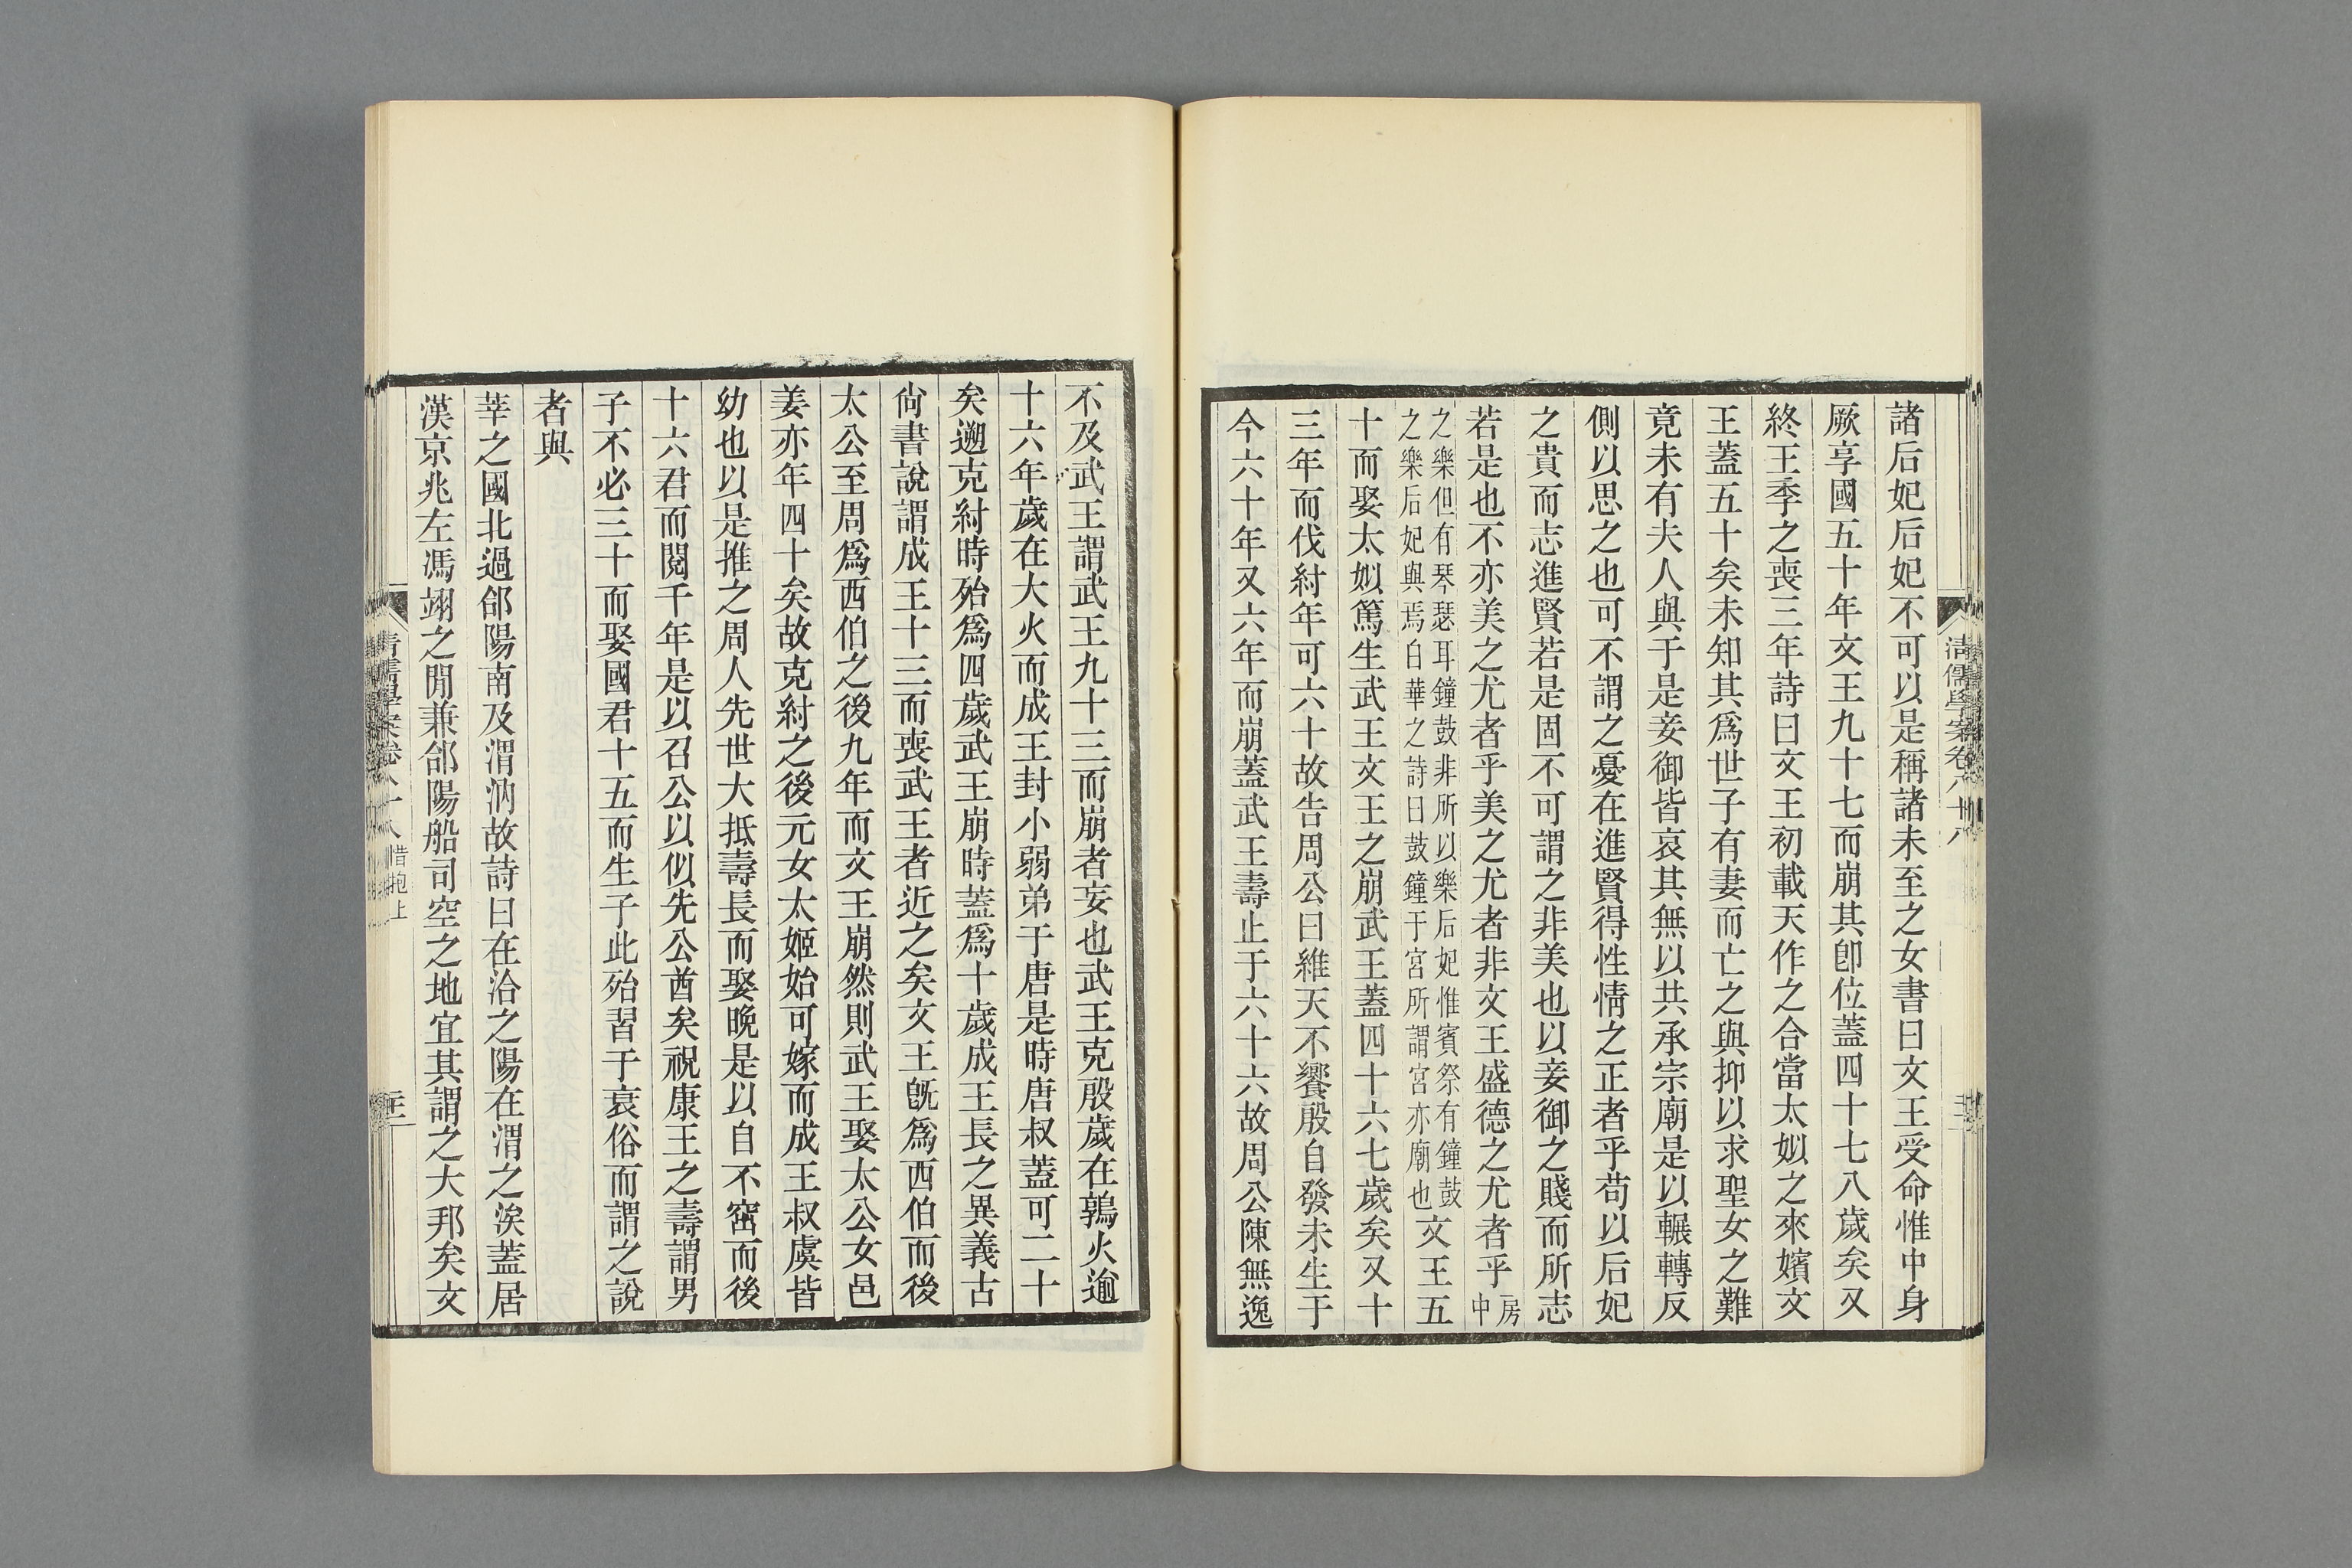 清儒學案卷八十八
諸后妃后妃不可以是稱諸未至之女書曰文王受命惟中身
厥享國五十年文王九十七而崩其卽位蓋四十七八歲矣又
終王季之喪三年詩曰文王初載天作之合當太姒之來嬪文
王蓋五十矣未知其爲世子有妻而亡之與抑以求聖女之難
竟未有夫人與于是妾御皆哀其無以共承宗廟是以輾轉反
側以思之也可不謂之憂在進賢得性情之正者乎苟以后妃
之貴而志進賢若是固不可謂之非美也以妾御之賤而所志
若是也不亦美之尤者乎美之尤者非文王盛德之尤者乎房中
之樂但有琴瑟耳鐘鼓非所以樂后妃惟賓祭有鐘鼓
之樂后妃與焉白華之詩曰鼓鐘于宮所謂宮亦廟也文王五
十而娶太姒篤生武王文王之崩武王蓋四十六七歲矣又十
三年而伐紂年可六十故告周公曰維天不饗殷自發未生于
今六十年又六年而崩蓋武王壽止于六十六故周公陳無逸
不及武王謂武王九十三而崩者妄也武王克殷歲在鶉火逾
十六年歲在大火而成王封小弱弟于唐是時唐叔蓋可二十
矣遡克紂時殆爲四歲武王崩時蓋爲十歲成王長之異義古
尙書說謂成王十三而喪武王者近之矣文王旣爲西伯而後
太公至周爲西伯之後九年而文王崩然則武王娶太公女邑
姜亦年四十矣故克紂之後元女太姬始可嫁而成王叔虞皆
幼也以是推之周人先世大抵壽長而娶晚是以自不窋而後
十六君而閱千年是以召公以似先公酋矣祝康王之壽謂男
子不必三十而娶國君十五而生子此殆習于衰俗而謂之說
者與
莘之國北過郃陽南及渭汭故詩曰在洽之陽在渭之涘蓋居
漢京兆左馮翊之閒兼郃陽船司空之地宜其謂之大邦矣文
清儒學案卷八十八 惜抱上